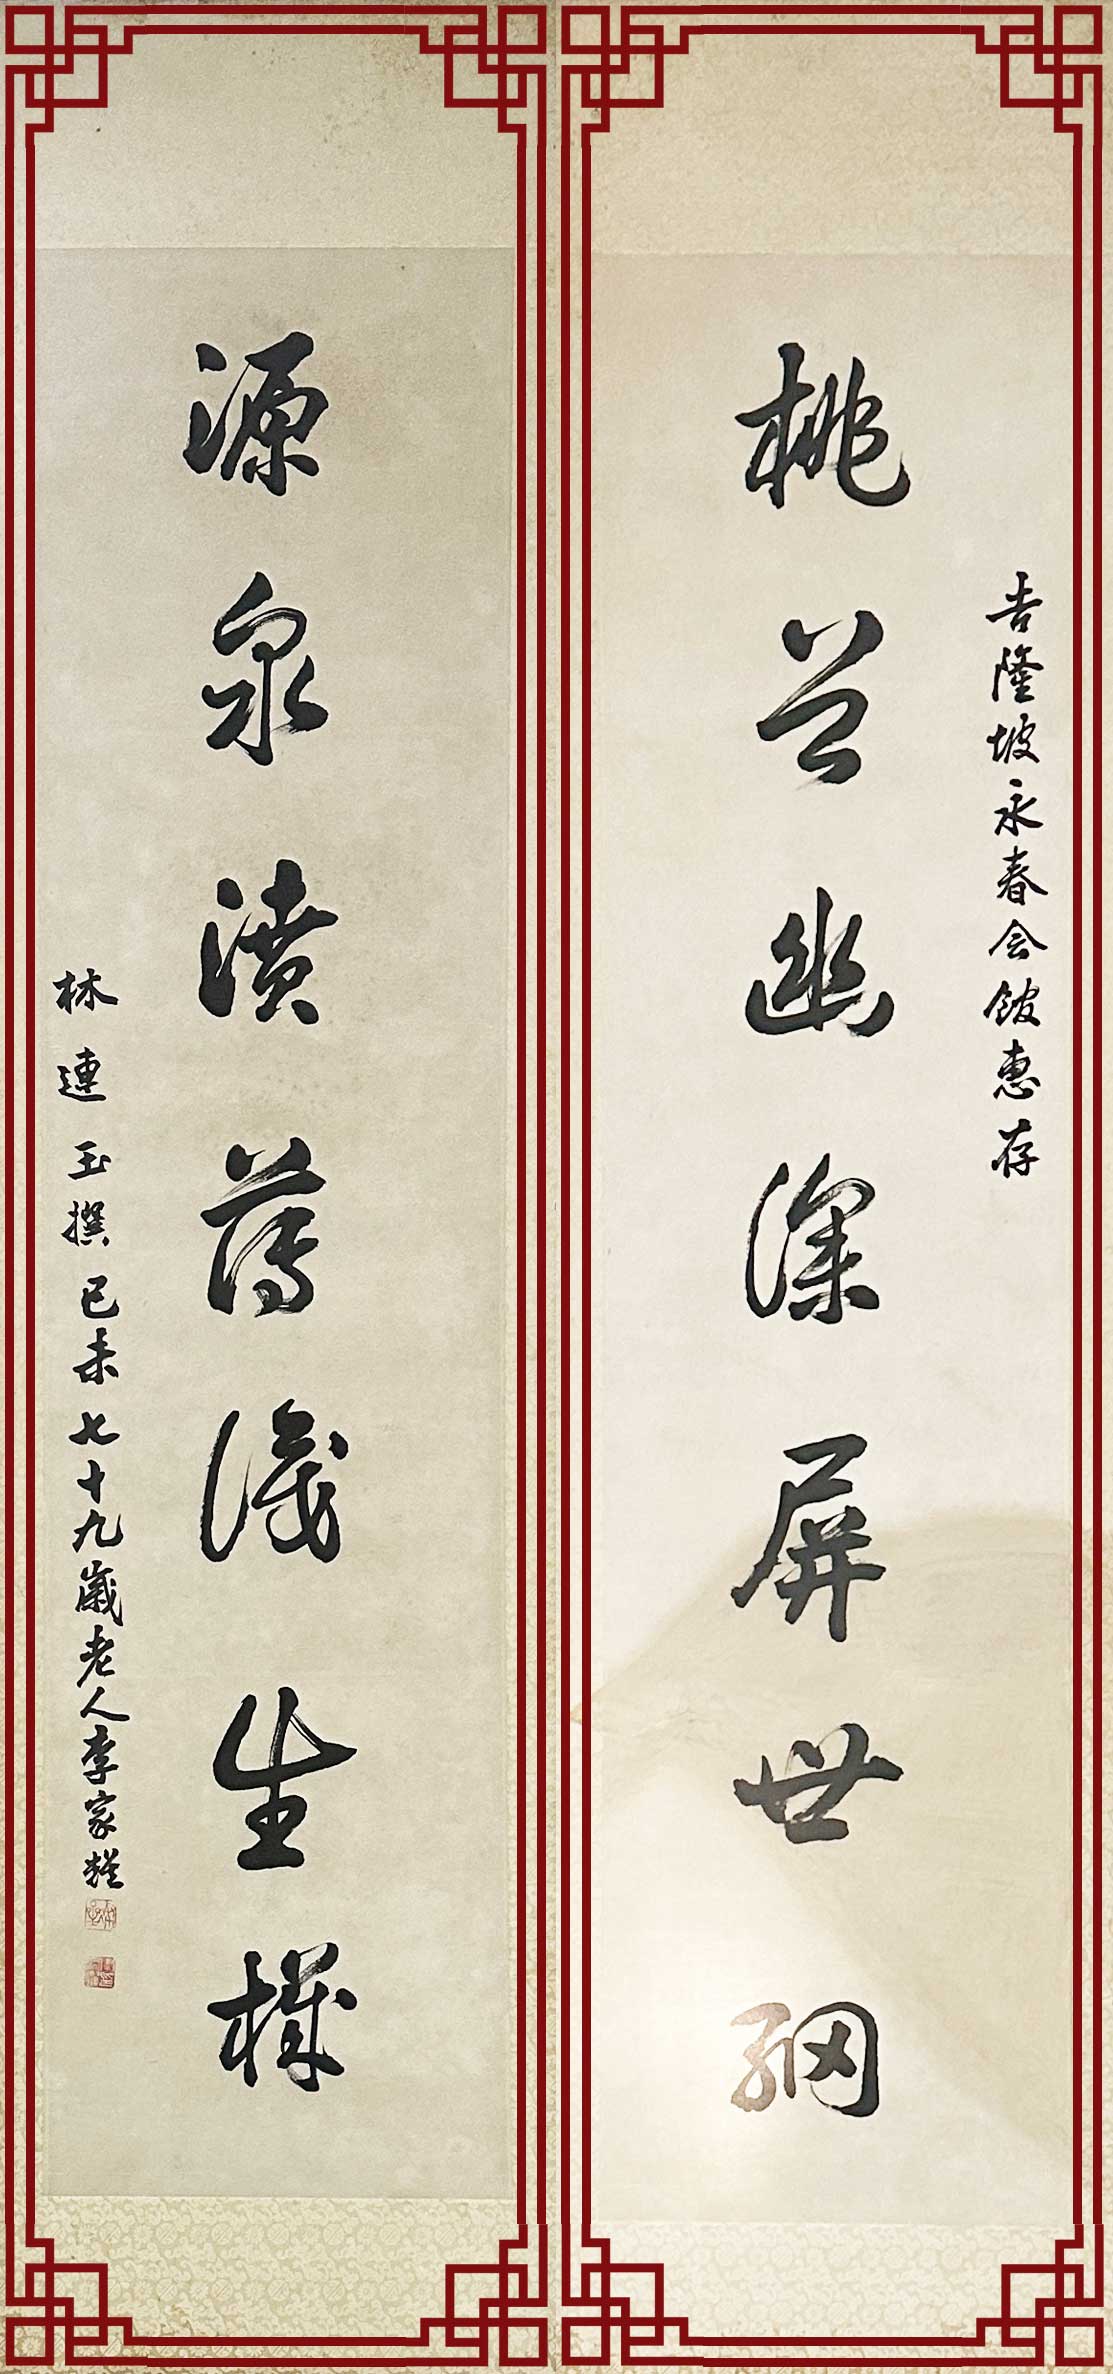 吉隆坡永春会館惠存
桃谷幽深屏世網
源泉濆薄識生機
林連玉撰己未七十九歲老人李家耀